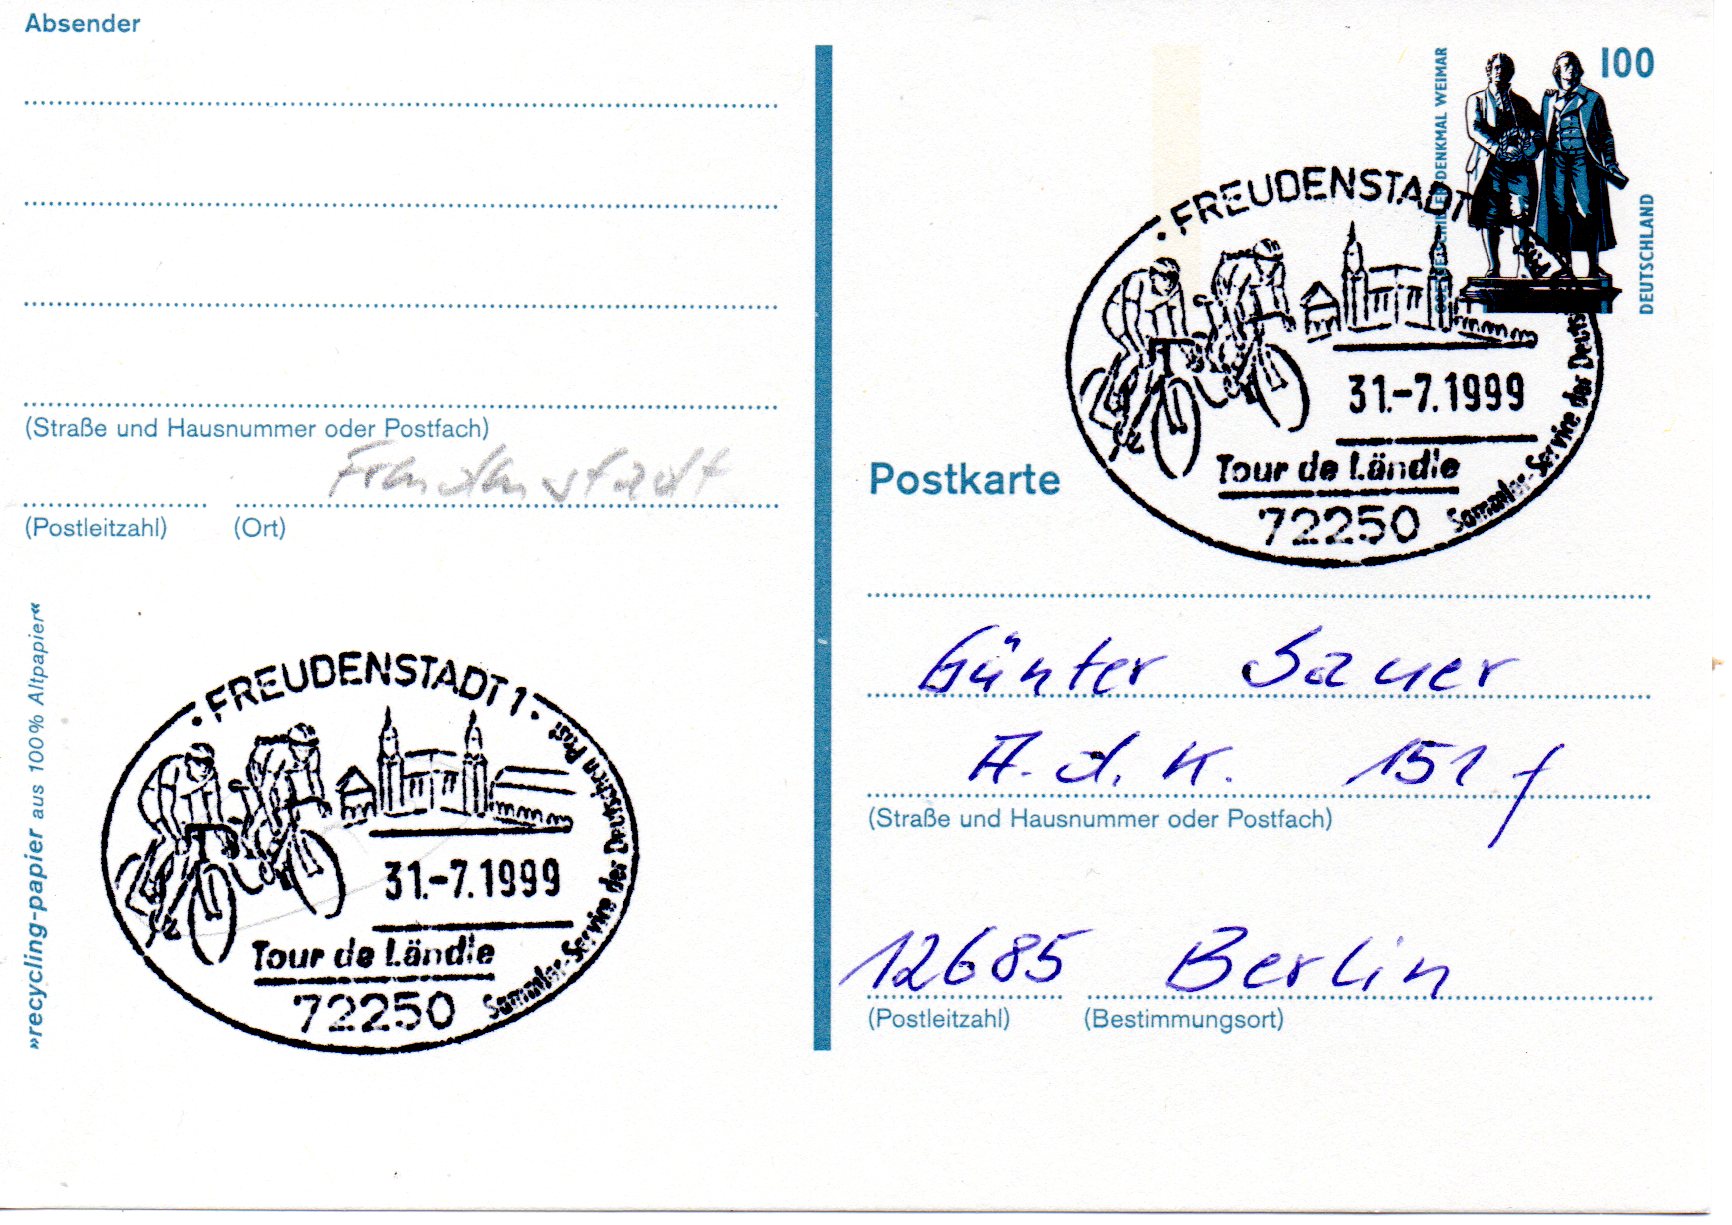 Absender
(Straße und Hausnummer oder Postfach)
Freudenstadt
(Postleitzahl) (Ort)
»recycling-papier aus 100% Altpapier«
· FREUDENSTADT 1 ·
31.-7.1999
Tour de Ländle
72250
Sammler-Service der Deutschen Post
100
DENKMAL WEIMAR
DEUTSCHLAND
· FREUDENSTADT
31.-7.1999
Tour de Ländle
72250
Sammler-Service der Deuts
Postkarte
Günter Sauer
A. d. K. 151 f
(Straße und Hausnummer oder Postfach)
12685 Berlin
(Postleitzahl) (Bestimmungsort)